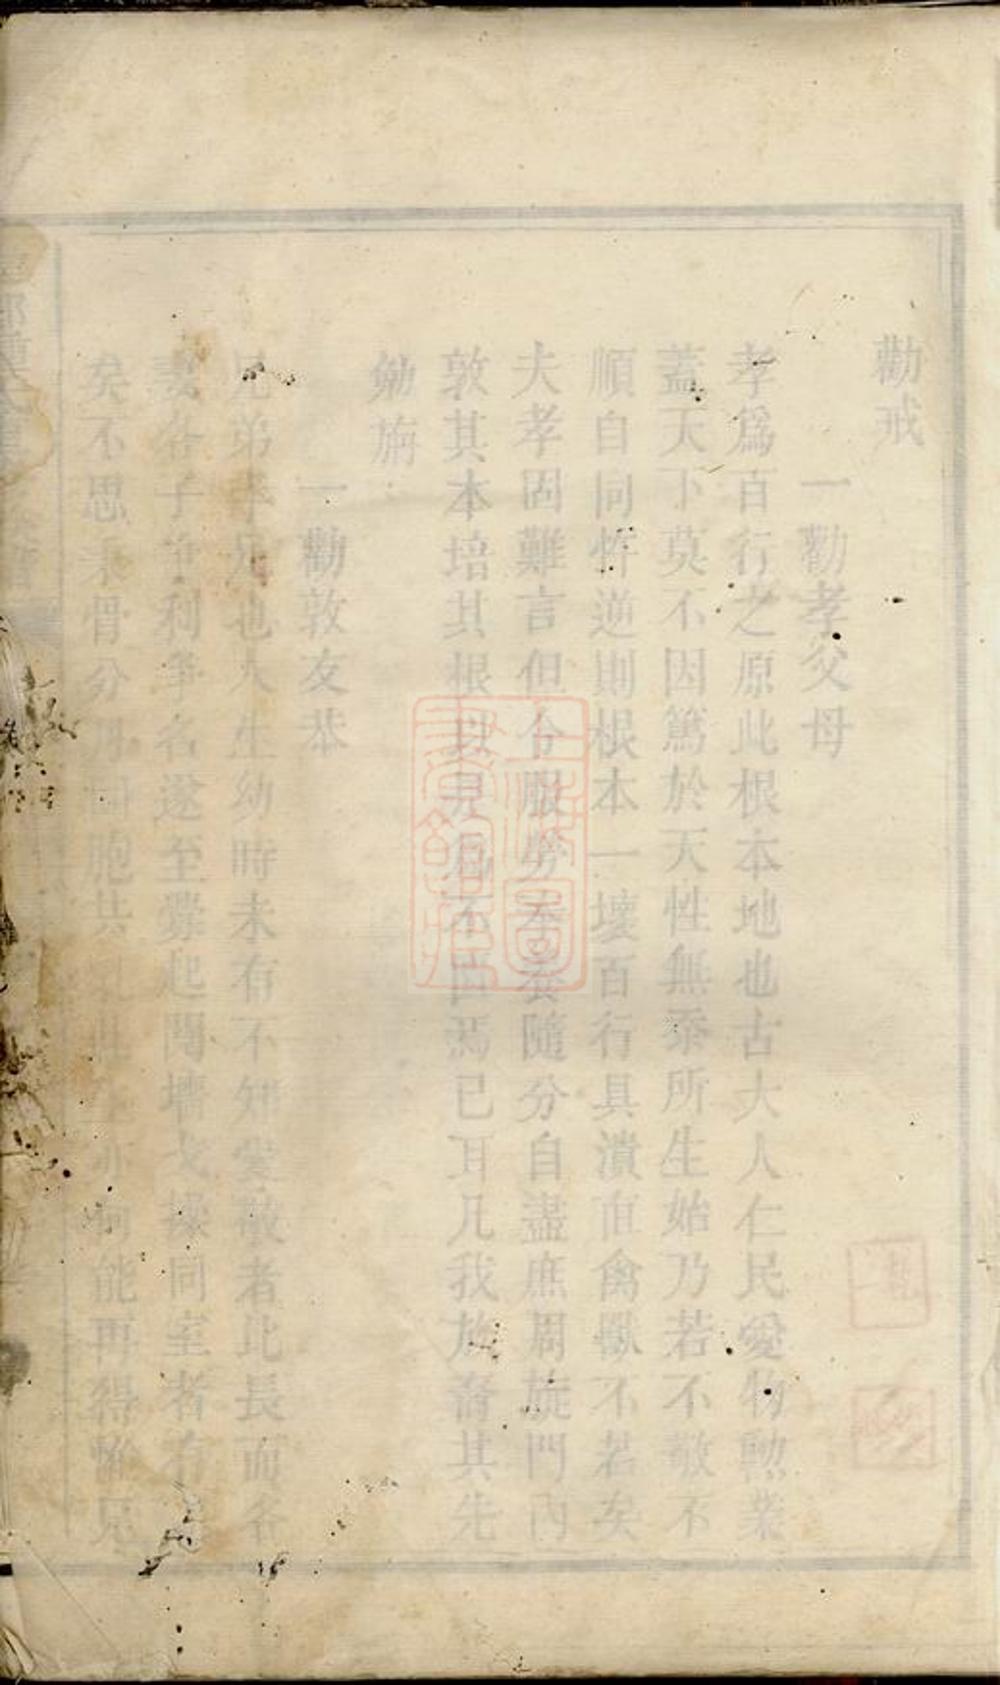 勸戒
一勸孝父母
孝爲百行之原此根本地也古大人仁民愛物勲業
蓋天下莫不因篤於天性無忝所生始乃若不敬不
順自同忤逆則根本一壞百行具潰直禽獸不若矣
夫孝固難言但令服勞奉養隨分自盡庶周旋門內
敦其本培其根以是爲不匱焉已耳凡我族裔其先
勉旃
一勸敦友恭
兄弟手足也人生幼時未有不知愛敬者比長而各
妻各子爭利爭名遂至釁起鬩墻戈操同室者有
矣不思柔骨分形同胞共乳此生亦何能再得惟兄
上海圖書館藏